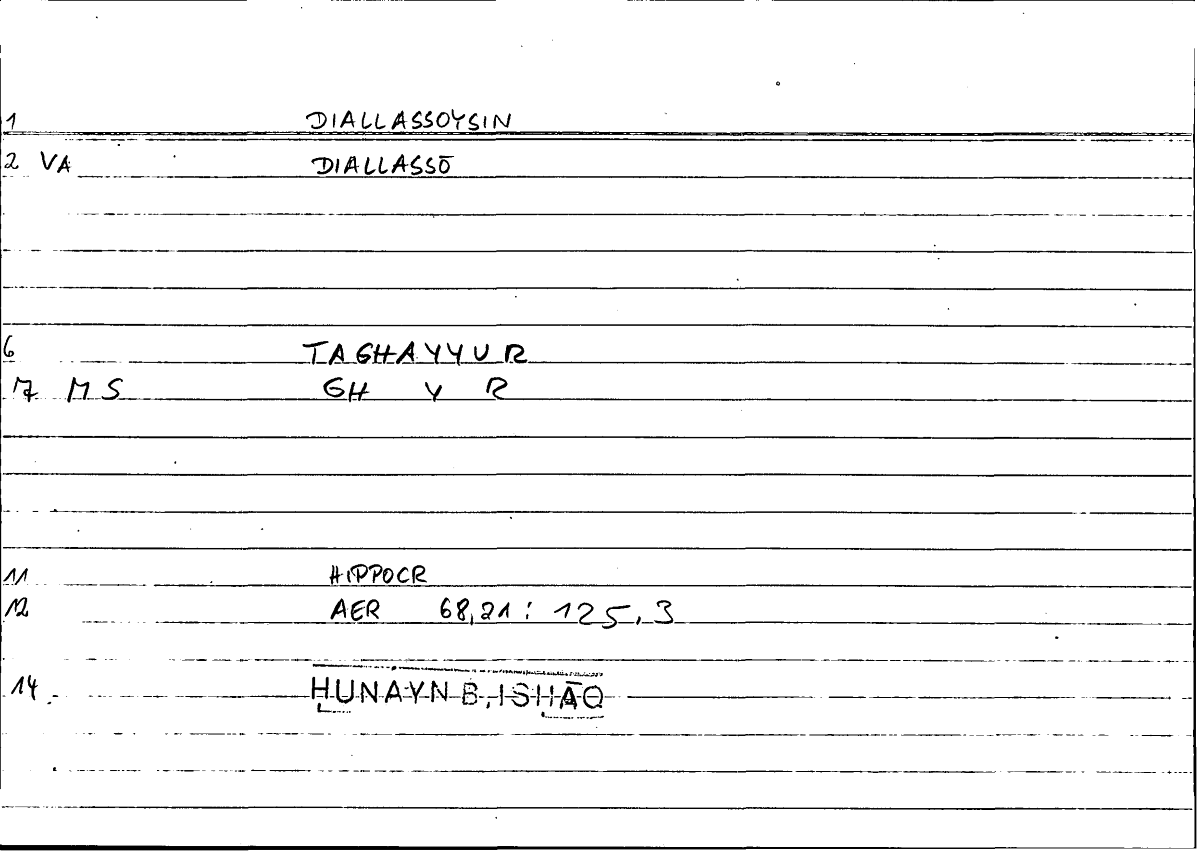 1 DIALLASSOYSIN
2 VA DIALLASSŌ
6 TAGHAYYUR
7 MS GH Y R
11 HIPPOCR
12 AER 68,21 : 125,3
14 ḤUNAYN B. ISḤĀQ